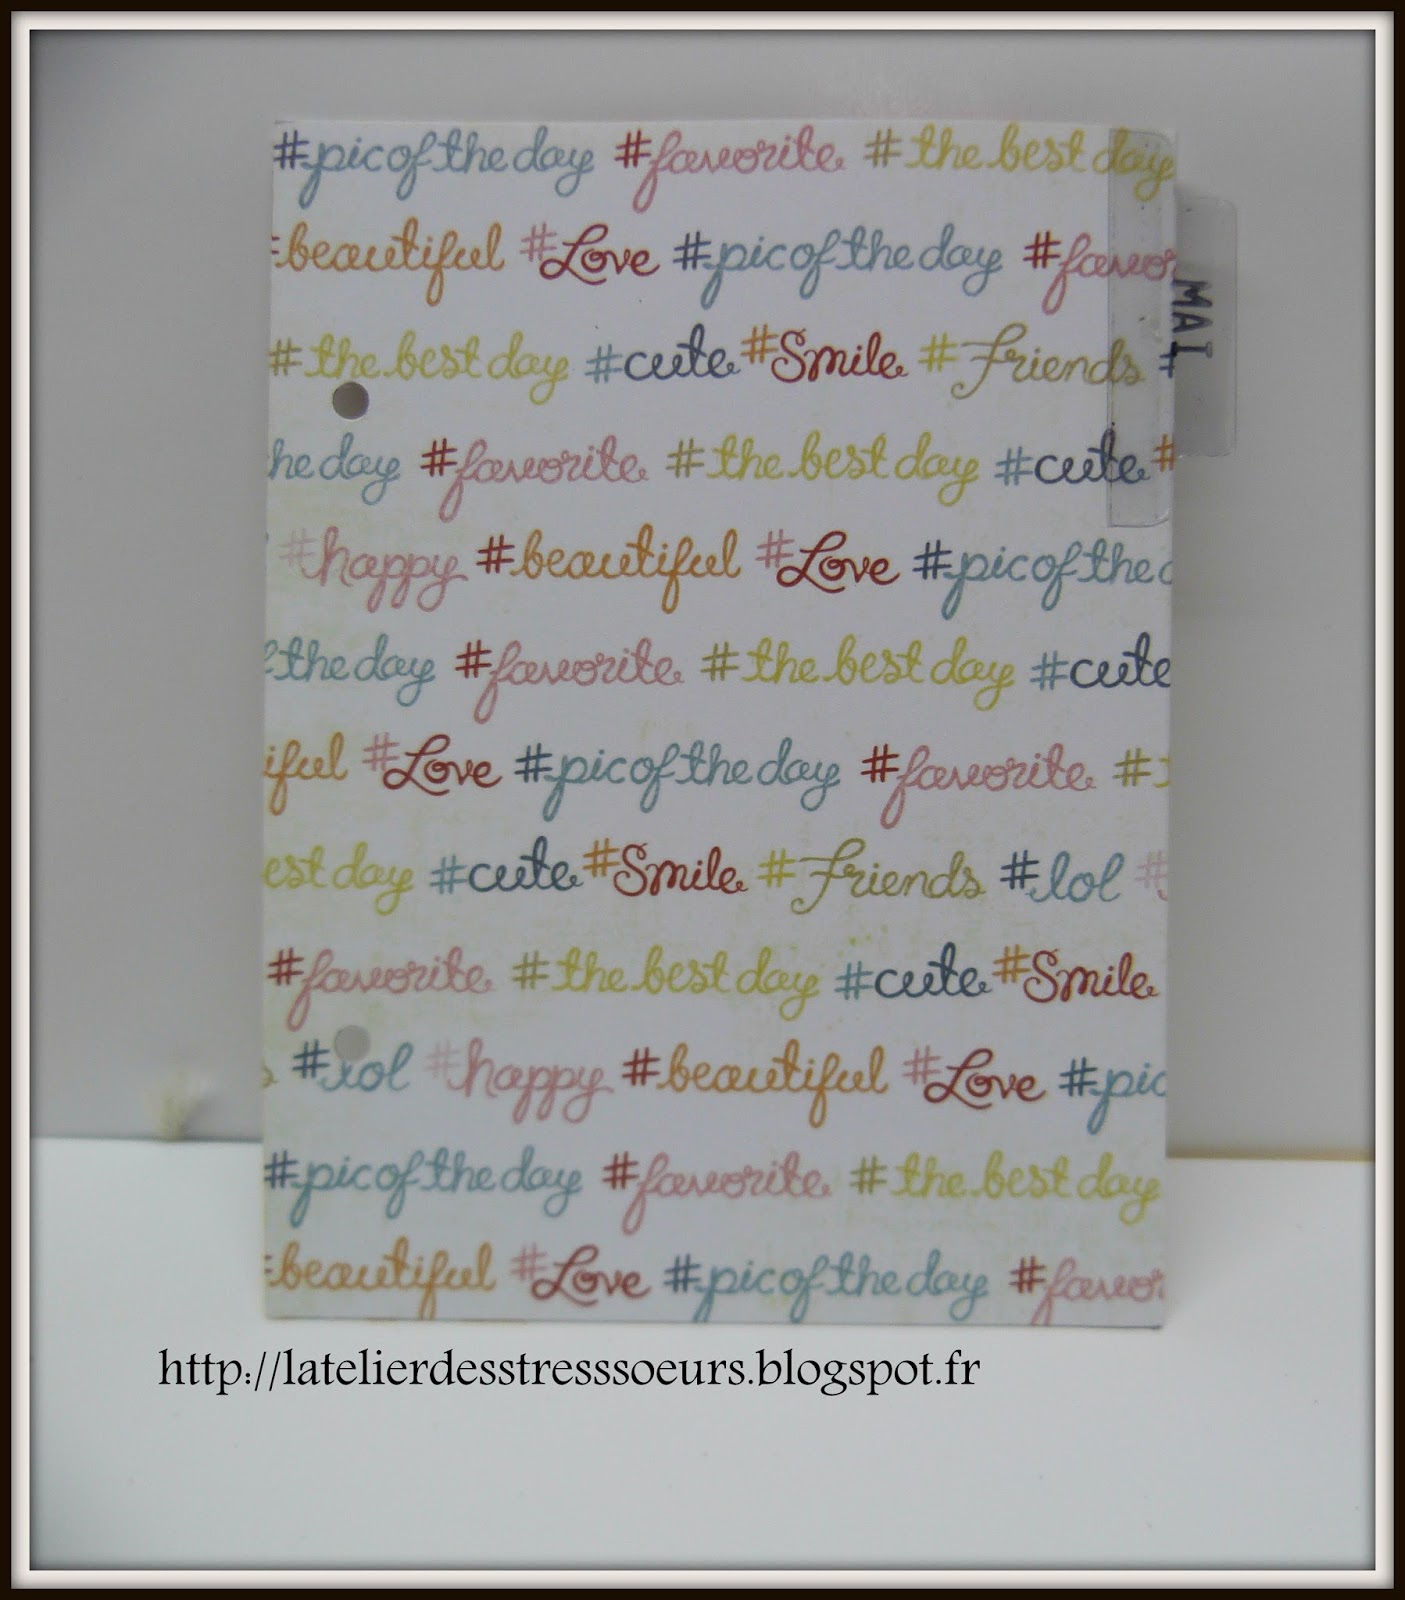 #picoftheday #favorite #the best day
#beautiful #Love #picoftheday #favor
MAI
#the best day #cute #Smile #Friends #
he day #favorite #the best day #cute #
#happy #beautiful #Love #picofthe
f the day #favorite #the best day #cute
iful #Love #picoftheday #favorite #
est day #cute #Smile #Friends #lol #
#favorite #the best day #cute #Smile
s #lol #happy #beautiful #Love #pic
#picoftheday #favorite #the best day
#beautiful #Love #picoftheday #favor
http://latelierdesstresssoeurs.blogspot.fr